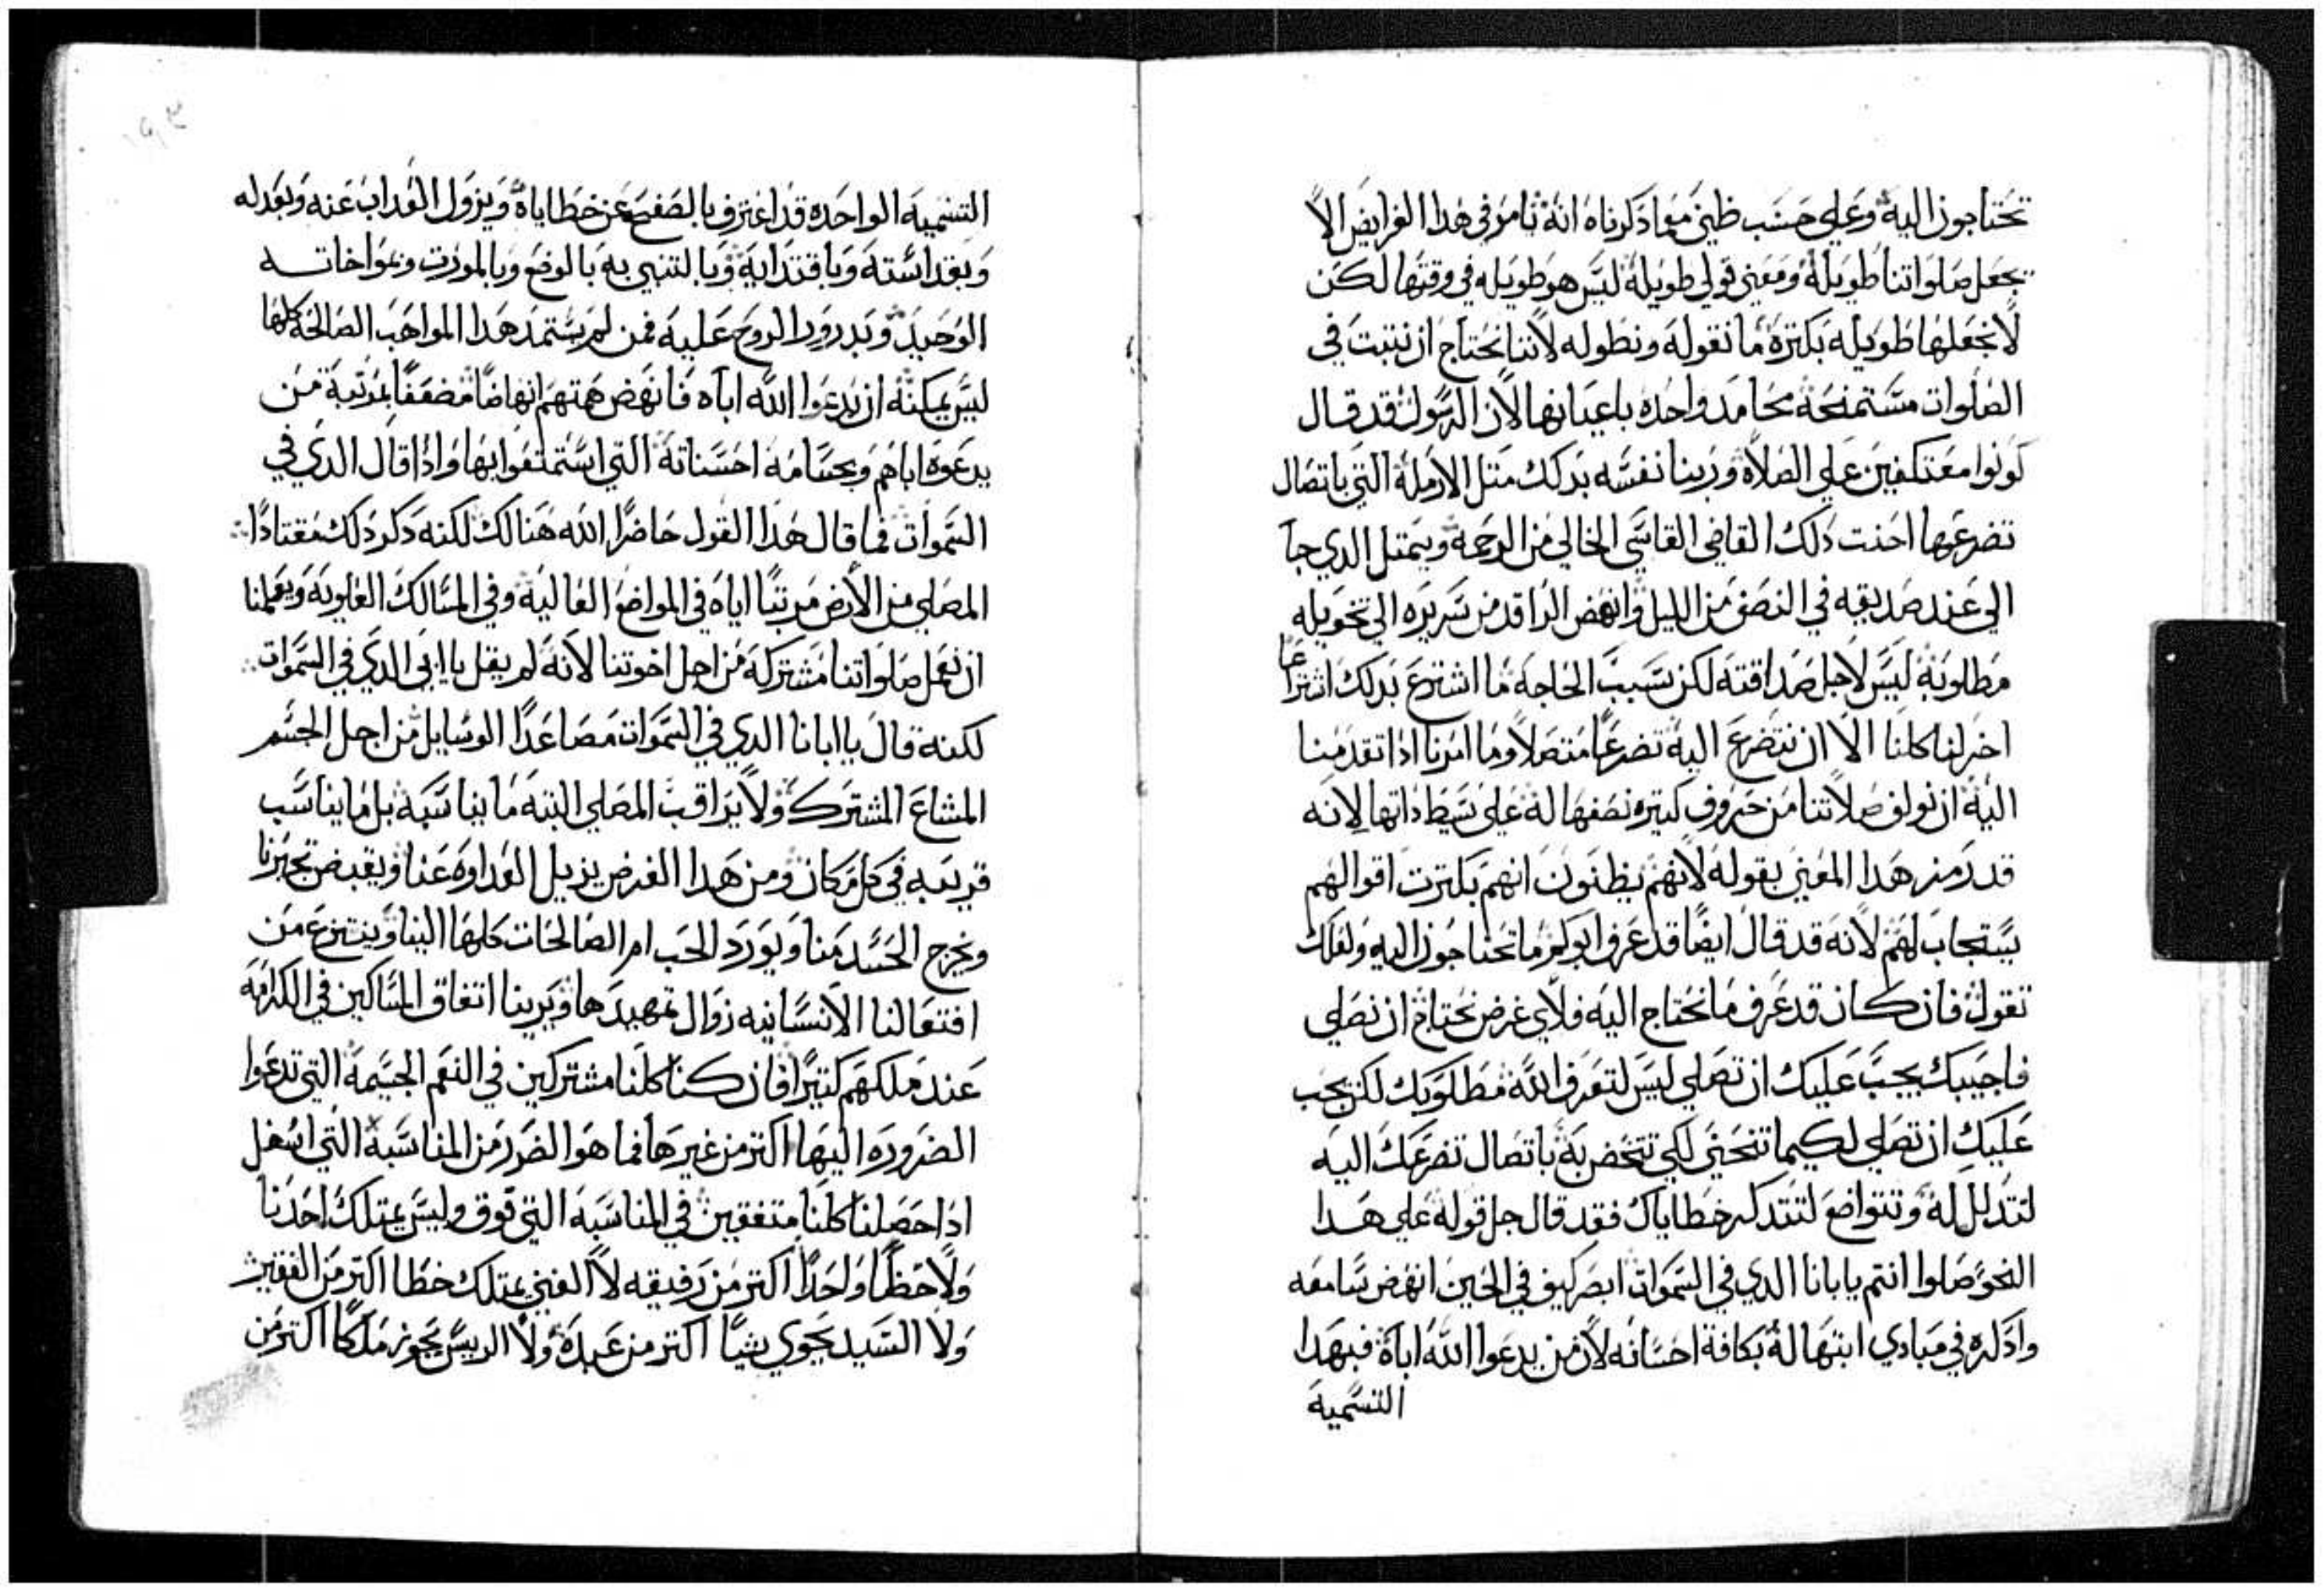 تحتاجون اليه وعلي حسب ظني مما ذكرناه انه تامر في هدا الفرايض الا
نجعل صلواتنا طويلة ومعني قولي طويلة ليس هو طويله في وقتها لكن
لا نجعلها طويله بكترة ما نقوله ونطوله لاننا نحتاج ان نتبت في
الصلوات مستمنحة محامد واحده باعيانها لان الرسول قد قال
كونوا معتكفين علي الصلاة وربنا نفسه بدلك متل الارملة التي باتصال
تضرعها احنت دلك القاضي القاسي الخالي من الرحمه ويتمتل الدي جا
الي عند صديقه في النصف من الليل وانهض الراقد من سريره الي تخويله
مطلوبه ليس لاجل صداقته لكن بسبب الحاجه ما اشترع بدلك اشتراعا
اخر لنا كلنا الا ان نتضرع اليه تضرعا متصلا وما امرنا ادا تقدمنا
اليه ان نولف صلاتنا من حروف كتيره نصفها له علي بسيط داتها لانه
قد رمز هدا المعني بقوله لانهم يظنون انهم بكترت اقوالهم
يستجاب لهم لانه قد قال ايضا قد عرف ابوكم ما تحتاجون اليه ولعلك
تقول فان كان قد عرف ما نحتاج اليه فلاي غرض نحتاج ان نصلي
فاجيبك يجب عليك ان تصلي ليس لتعرف الله مطلوبك لكن يجب
عليك ان تصلي لكيما تنحني لكي تتخضر به باتصال تضرعك اليه
لتدلل له وتتواضع لتتدكر خطاياك فقد قال جل قوله علي هدا
النحو صلوا انتم يابانا الدي في السموات ابصر كيف في الحين انهض سامعه
وادكره في مبادي ابتهاله بكافة احسانه لان من يدعوا الله اباه فبهدا
التسمية
التسميه الواحده قد اعترف بالصفح عن خطاياه ويزول العداب عنه وبعدله
وبقداسته وبافتدايه وبالتنبي به بالوضع وبالمورت وبمواخاته
الوحيد وبدرور الروح عليه فمن لم يستمد هدا المواهب الصالحة كلها
ليس يمكنه ان يدعوا الله اباه فانهض همتهم انهاضا مضعفا بمرتبة من
يدعوه اباهم وبجسامة احسناته التي استمتعوا بها وادا قال الدي في
السموات فما قال هدا القول حاضرا الله هنالك لكنه دكر دلك مقتادا
المصلي من الارض مرتبا اياه في المواضع العالية وفي المسالك العلويه ويعلمنا
ان نعمل صلواتنا مشتركه من اجل اخوتنا لانه لم يقل يا ابي الدي في السموات
لكنه قال يا ابانا الدي في السموات مصاعدا الوسايل من اجل الجسم
المشاع المشترك ولا يراقب المصلي البته ما يناسبه بل ما يناسب
قريبه في كل مكان ومن هدا الغرض يزيل العداوه عنا ويقبض تجبرنا
ويخرج الحسد منا ويورد الحب ام الصالحات كلها الينا وينتزع من
افتعالنا الانسانيه زوال تمهيدها ويرينا اتفاق المساكين في الكرامه
عند ملكهم كتيرا فان كنا كلنا مشتركين في النعم الجسيمة التي تدعوا
الضروره اليها اكتر من غيرها فما هو الضرر من المناسبة التي اسفل
ادا حصلنا كلنا متفقين في المناسبة التي فوق وليس يمتلك احدنا
ولا حظا واحدا اكتر من رفيقه لا الغني يمتلك خطا اكتر من الفقير
ولا السيد يحوي شيا اكتر من عبده ولا الريس يحوز ملكا اكتر من